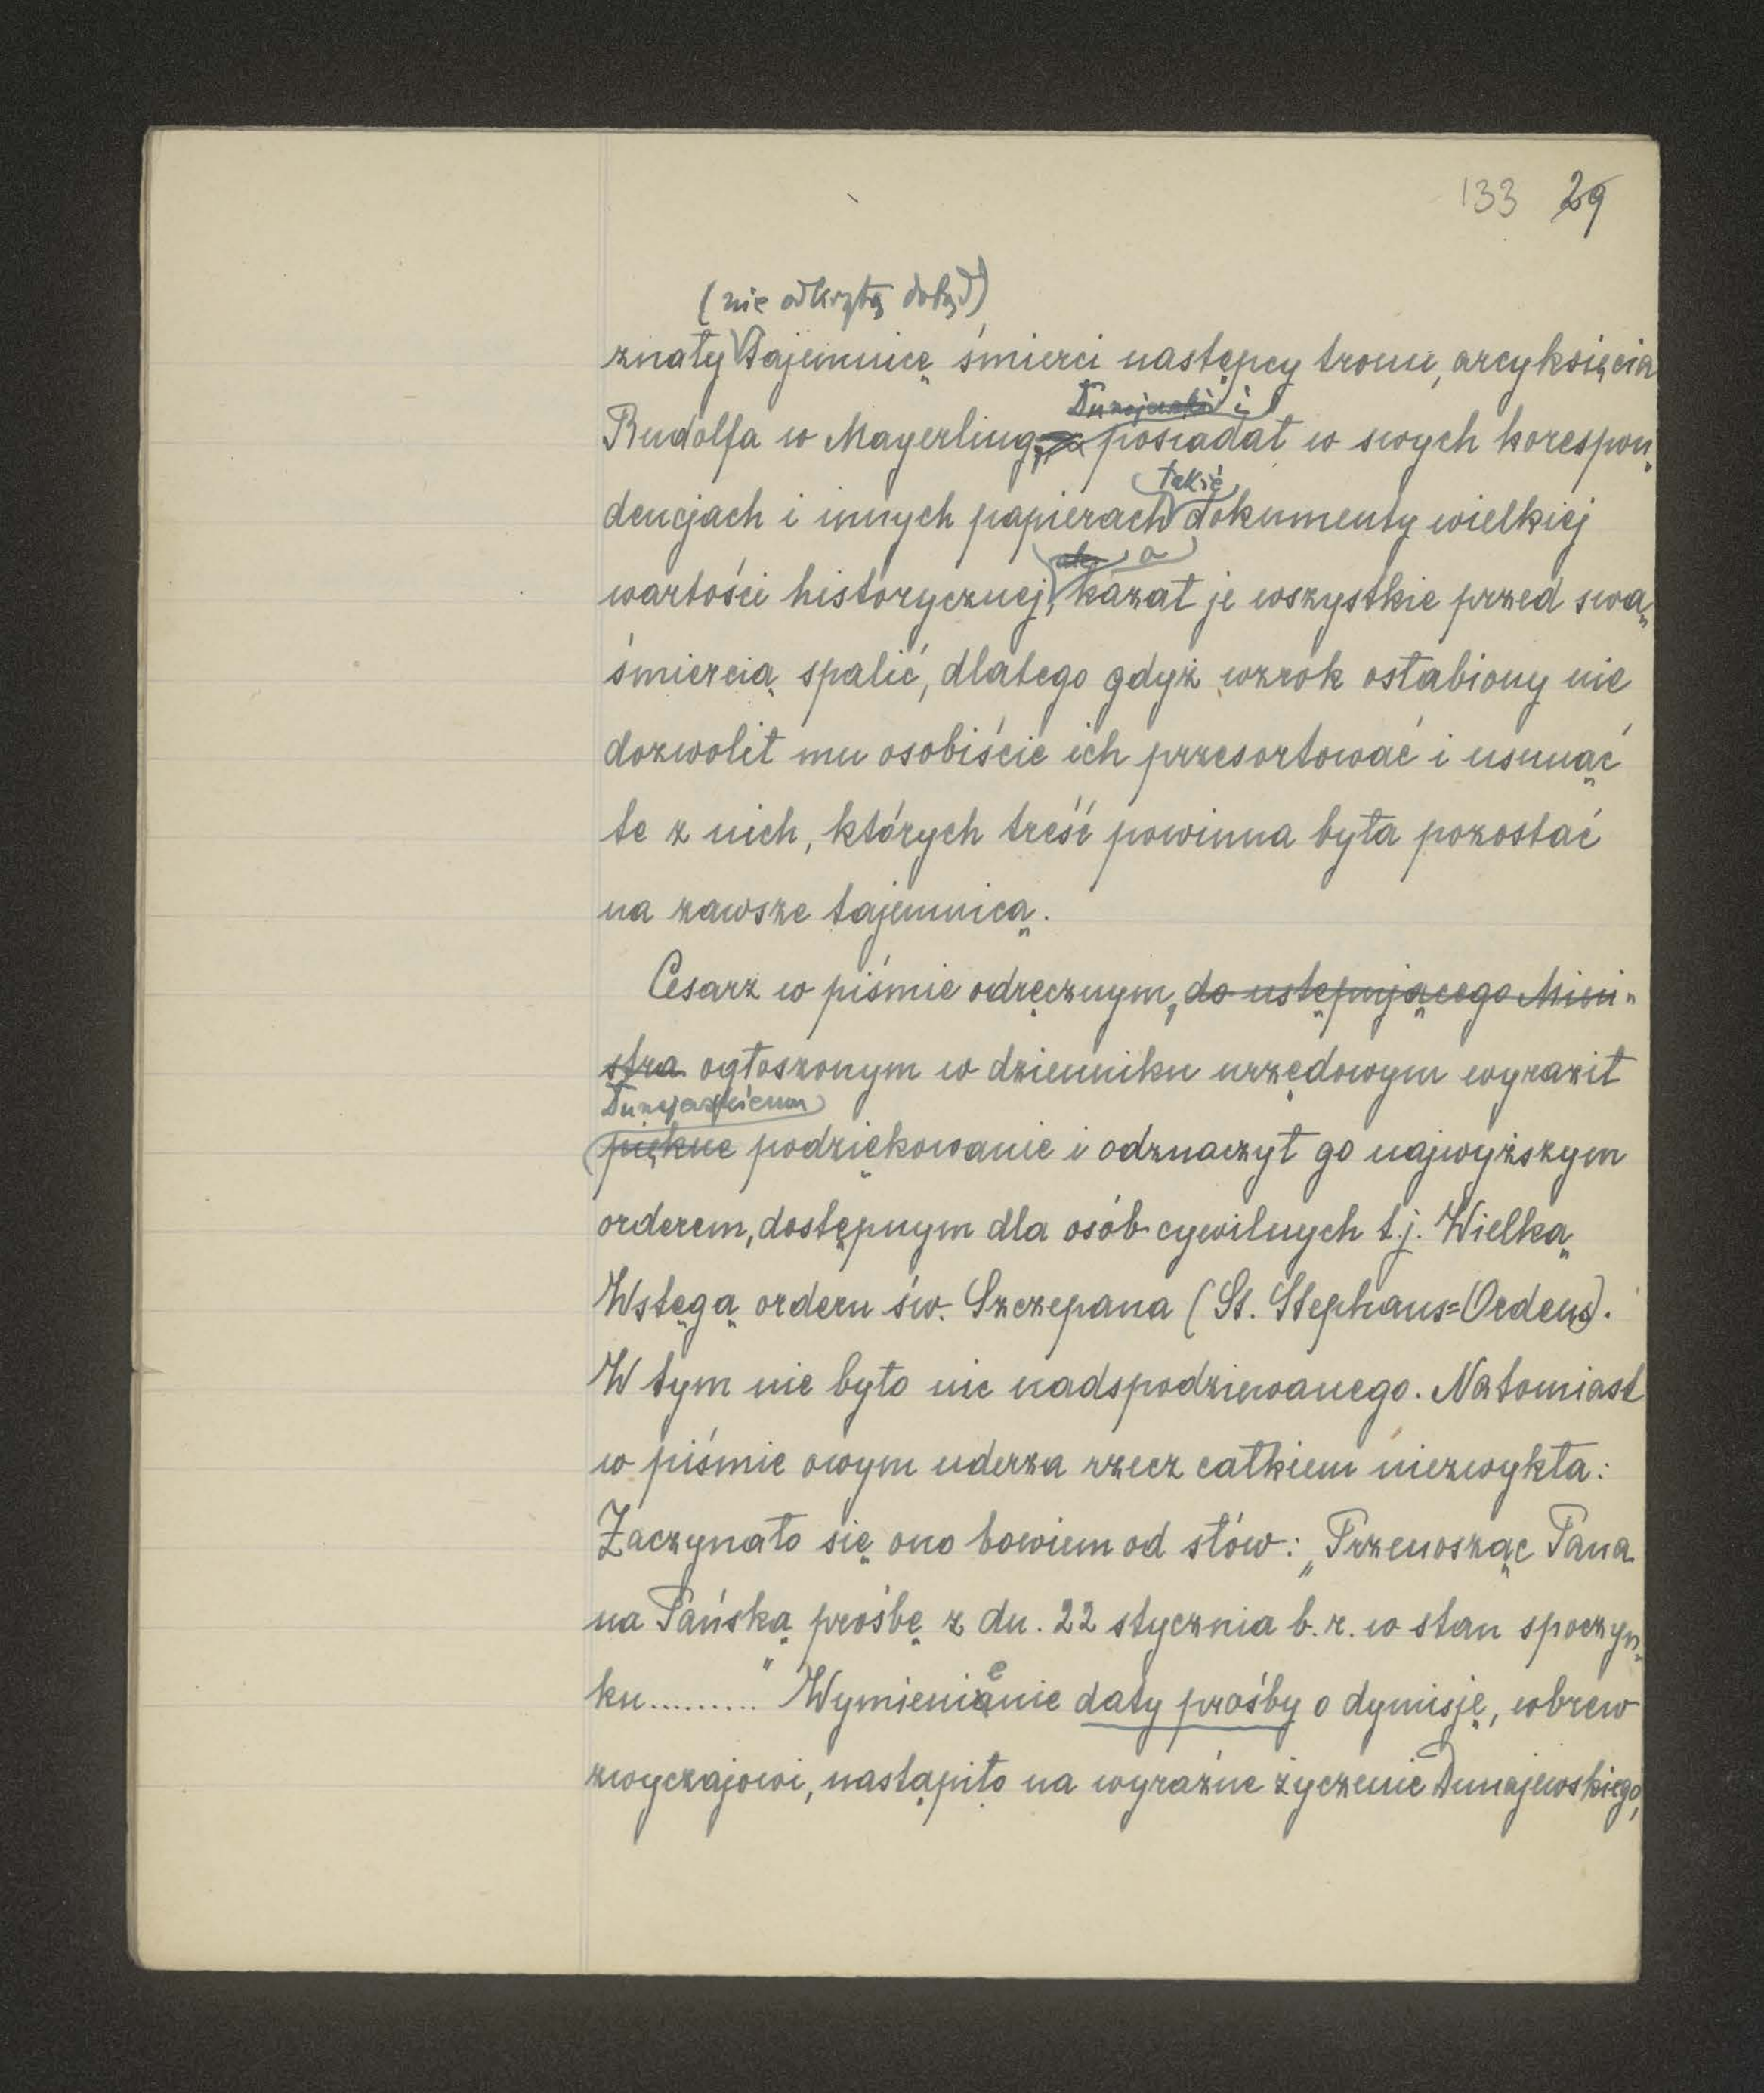 133 29
(nie odkrytą dotąd)
znały tajemnicę śmierci następcy tronu, arcyksięcia
Dunajewski i
Rudolfa w Mayerling, posiadał w swych korespon„
takie
dencjach i innych papierach dokumenty wielkiej
ale a
wartości historycznej, kazał je wszystkie przed swą„
śmiercią spalić, dlatego gdyż wzrok osłabiony nie
dozwolił mu osobiście ich przesortować i usunąć
te z nich, których treść powinna była pozostać
na zawsze tajemnicą.
Cesarz w piśmie odręcznym, do ustępującego Mini„
stra ogłoszonym w dzienniku urzędowym wyraził
Dunajewskiemu
piękne podziękowanie i odznaczył go najwyższym
orderem, dostępnym dla osób cywilnych t.j. Wielką
Wstęgą orderu św. Szczepana (St. Stephans=Ordens).
W tym nie było nic nadspodziewanego. Natomiast
w piśmie owym uderza rzecz całkiem niezwykła:
Zaczynało się ono bowiem od słów: „Przenosząc Pana
na Pańską prośbę z dn. 22 stycznia b.r. w stan spoczyn„
ku......... " Wymienienie daty prośby o dymisję, wbrew
zwyczajowi, nastąpiło na wyraźne życzenie Dunajewskiego,